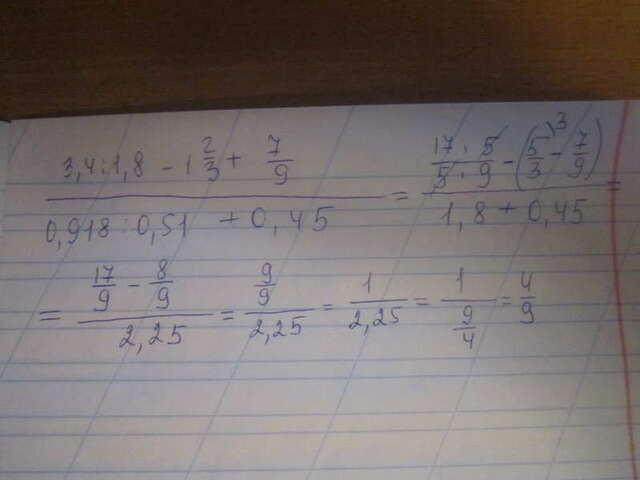 3,4:1,8 - 1 2/3 + 7/9 / 0,918:0,51 + 0,45 = 17·5/5·9 - (5/3 ³ - 7/9) / 1,8 + 0,45 =
= 17/9 - 8/9 / 2,25 = 9/9 / 2,25 = 1/2,25 = 1 / 9/4 = 4/9